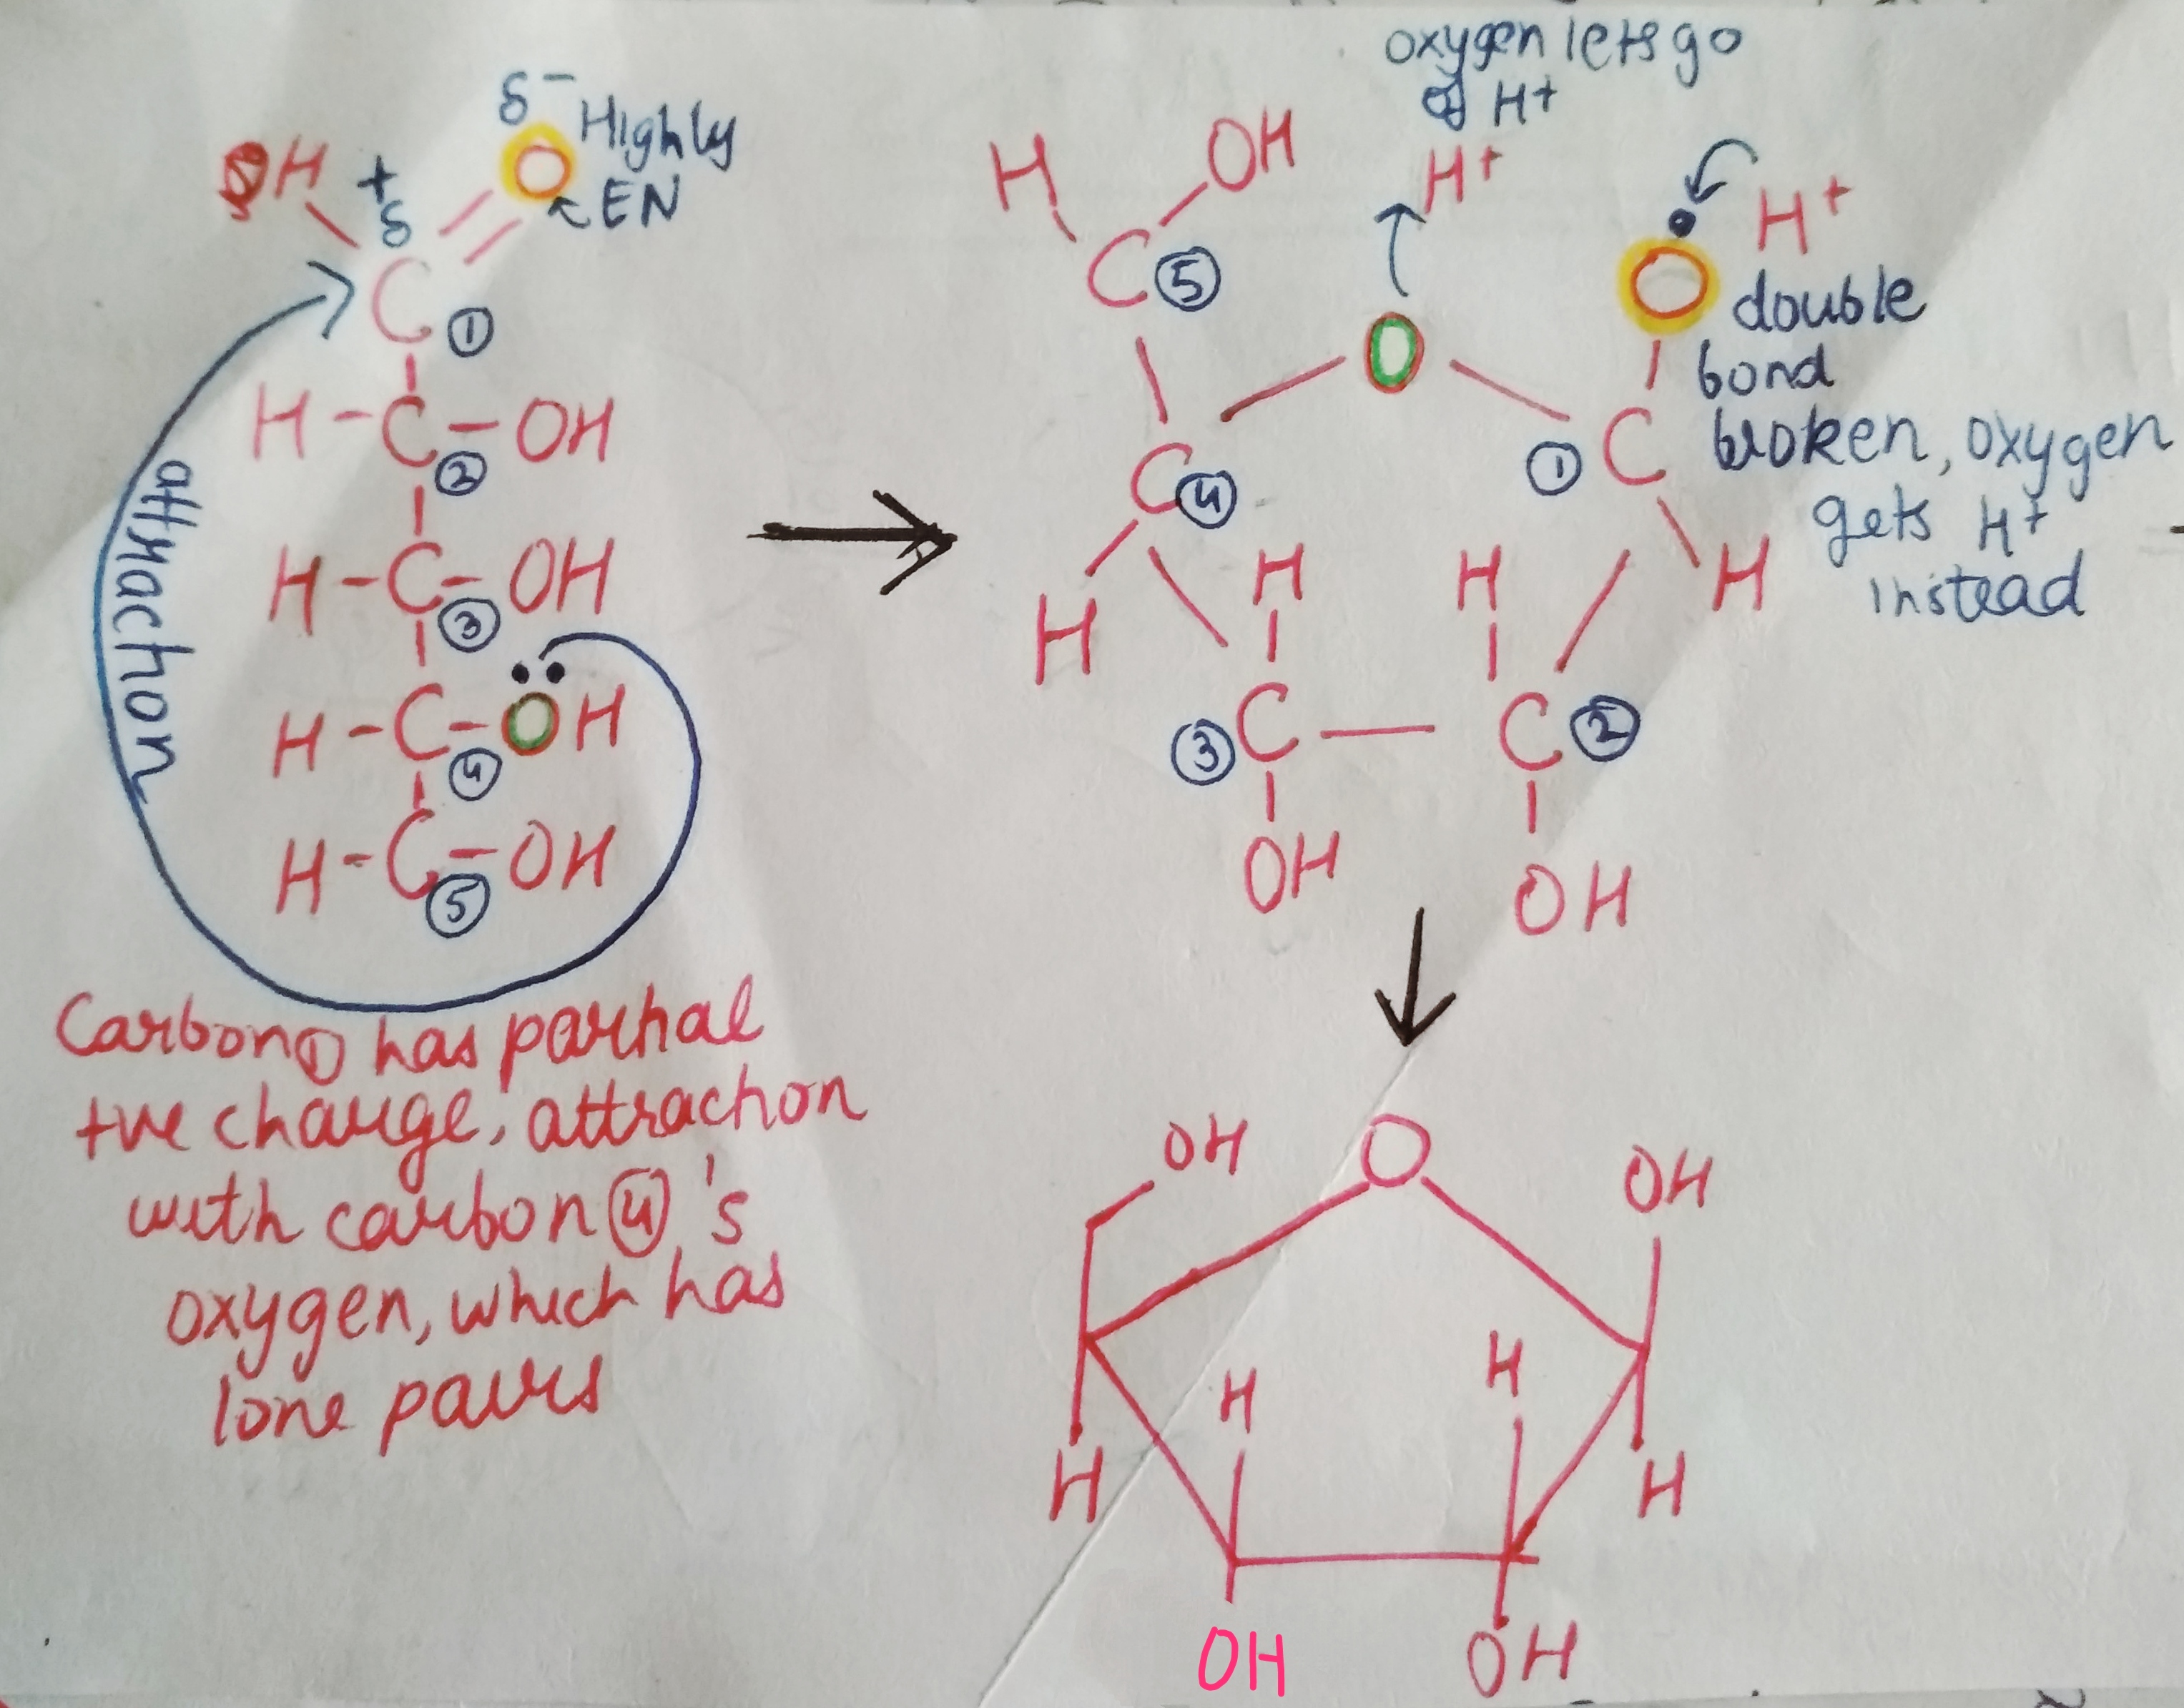 δ⁻
Highly
EN
H
+
δ
O
C
①
H-C-OH
②
H-C-OH
③
H-C-OH
④
H-C-OH
⑤
attraction
Carbon① has partial
+ve charge, attraction
with carbon④'s
oxygen, which has
lone pairs
oxygen lets go
of H+
H+
H
OH
C
⑤
O
H+
O
double
bond
broken, oxygen
gets H+
instead
C
①
H
C
④
H
H
H
③
C
C
②
OH
OH
OH
O
OH
H
H
H
H
OH
OH